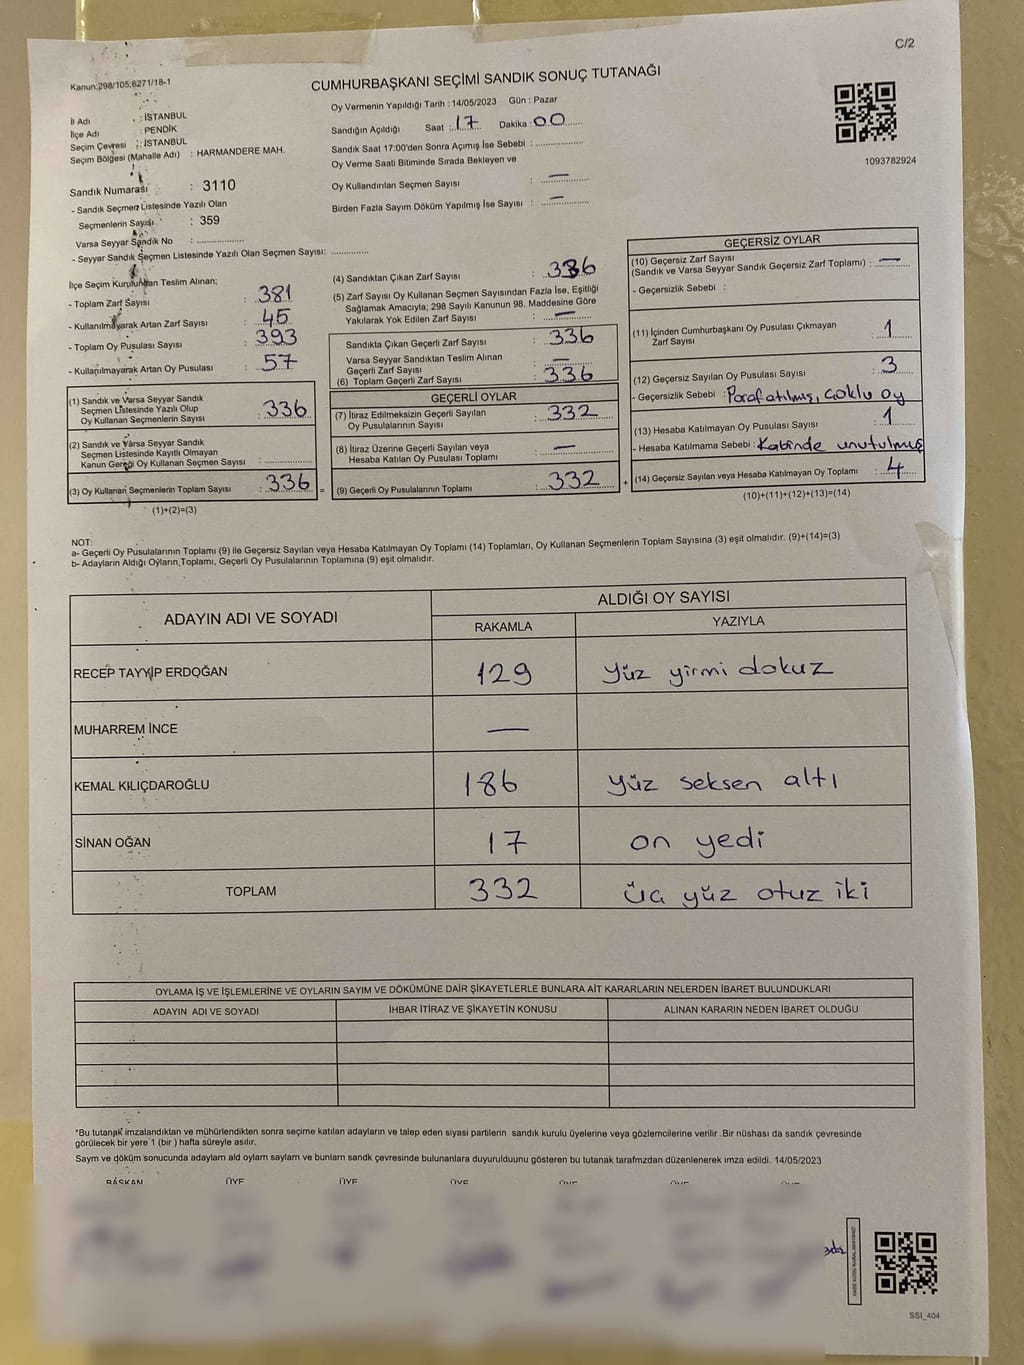 C/2
Kanun:298/105;6271/18-1
CUMHURBAŞKANI SEÇİMİ SANDIK SONUÇ TUTANAĞI
İl Adı : İSTANBUL
İlçe Adı : PENDİK
Seçim Çevresi : İSTANBUL
Seçim Bölgesi (Mahalle Adı) : HARMANDERE MAH.
Sandık Numarası : 3110
- Sandık Seçmen Listesinde Yazılı Olan
Seçmenlerin Sayısı : 359
Varsa Seyyar Sandık No : ....................
- Seyyar Sandık Seçmen Listesinde Yazılı Olan Seçmen Sayısı: ................
Oy Vermenin Yapıldığı Tarih : 14/05/2023 Gün : Pazar
Sandığın Açıldığı Saat : 17 Dakika : 00
Sandık Saat 17:00'den Sonra Açımış İse Sebebi : ................
Oy Verme Saati Bitiminde Sırada Bekleyen ve
Oy Kullandırılan Seçmen Sayısı : —
Birden Fazla Sayım Döküm Yapılmış İse Sayısı : —
1093782924
İlçe Seçim Kurulundan Teslim Alınan;
- Toplam Zarf Sayısı : 381
- Kullanılmayarak Artan Zarf Sayısı : 45
- Toplam Oy Pusulası Sayısı : 393
- Kullanılmayarak Artan Oy Pusulası : 57
(1) Sandık ve Varsa Seyyar Sandık
Seçmen Listesinde Yazılı Olup
Oy Kullanan Seçmenlerin Sayısı : 336
(2) Sandık ve Varsa Seyyar Sandık
Seçmen Listesinde Kayıtlı Olmayan
Kanun Gereği Oy Kullanan Seçmen Sayısı : ................
(3) Oy Kullanan Seçmenlerin Toplam Sayısı : 336 =
(1)+(2)=(3)
(4) Sandıktan Çıkan Zarf Sayısı : 336
(5) Zarf Sayısı Oy Kullanan Seçmen Sayısından Fazla İse, Eşitliği
Sağlamak Amacıyla; 298 Sayılı Kanunun 98. Maddesine Göre
Yakılarak Yok Edilen Zarf Sayısı : —
Sandıkta Çıkan Geçerli Zarf Sayısı : 336
Varsa Seyyar Sandıktan Teslim Alınan
Geçerli Zarf Sayısı : —
(6) Toplam Geçerli Zarf Sayısı : 336
GEÇERLİ OYLAR
(7) İtiraz Edilmeksizin Geçerli Sayılan
Oy Pusulasının Sayısı : 332
(8) İtiraz Üzerine Geçerli Sayılan veya
Hesaba Katılan Oy Pusulası Toplamı : —
(9) Geçerli Oy Pusulalarının Toplamı : 332 +
GEÇERSİZ OYLAR
(10) Geçersiz Zarf Sayısı
(Sandık ve Varsa Seyyar Sandık Geçersiz Zarf Toplamı) : —
- Geçersizlik Sebebi :
(11) İçinden Cumhurbaşkanı Oy Pusulası Çıkmayan
Zarf Sayısı : 1
(12) Geçersiz Sayılan Oy Pusulası Sayısı : 3
- Geçersizlik Sebebi : Paraf atılmış, çoklu oy
(13) Hesaba Katılmayan Oy Pusulası Sayısı : 1
- Hesaba Katılmama Sebebi : Kabinde unutulmuş
(14) Geçersiz Sayılan veya Hesaba Katılmayan Oy Toplamı : 4
(10)+(11)+(12)+(13)=(14)
NOT:
a- Geçerli Oy Pusulalarının Toplamı (9) ile Geçersiz Sayılan veya Hesaba Katılmayan Oy Toplamı (14) Toplamları, Oy Kullanan Seçmenlerin Toplam Sayısına (3) eşit olmalıdır. (9)+(14)=(3)
b- Adayların Aldığı Oyların Toplamı, Geçerli Oy Pusulalarının Toplamına (9) eşit olmalıdır.
ADAYIN ADI VE SOYADI ALDIĞI OY SAYISI
RAKAMLA YAZIYLA
RECEP TAYYİP ERDOĞAN 129 Yüz yirmi dokuz
MUHARREM İNCE —
KEMAL KILIÇDAROĞLU 186 yüz seksen altı
SİNAN OĞAN 17 on yedi
TOPLAM 332 üç yüz otuz iki
OYLAMA İŞ VE İŞLEMLERİNE VE OYLARIN SAYIM VE DÖKÜMÜNE DAİR ŞİKAYETLERLE BUNLARA AİT KARARLARIN NELERDEN İBARET BULUNDUKLARI
ADAYIN ADI VE SOYADI İHBAR İTİRAZ VE ŞİKAYETİN KONUSU ALINAN KARARIN NEDEN İBARET OLDUĞU
*Bu tutanak imzalandıktan ve mühürlendikten sonra seçime katılan adayların ve talep eden siyasi partilerin sandık kurulu üyelerine veya gözlemcilerine verilir .Bir nüshası da sandık çevresinde
görülecek bir yere 1 (bir ) hafta süreyle asılır.
Sayım ve döküm sonucunda adayların ald oylarn saylarn ve bunlarn sandk çevresinde bulunanlara duyurulduunu gösteren bu tutanak tarafmzdan düzenlenerek imza edildi. 14/05/2023
BAŞKAN ÜYE ÜYE ÜYE
SSI_404